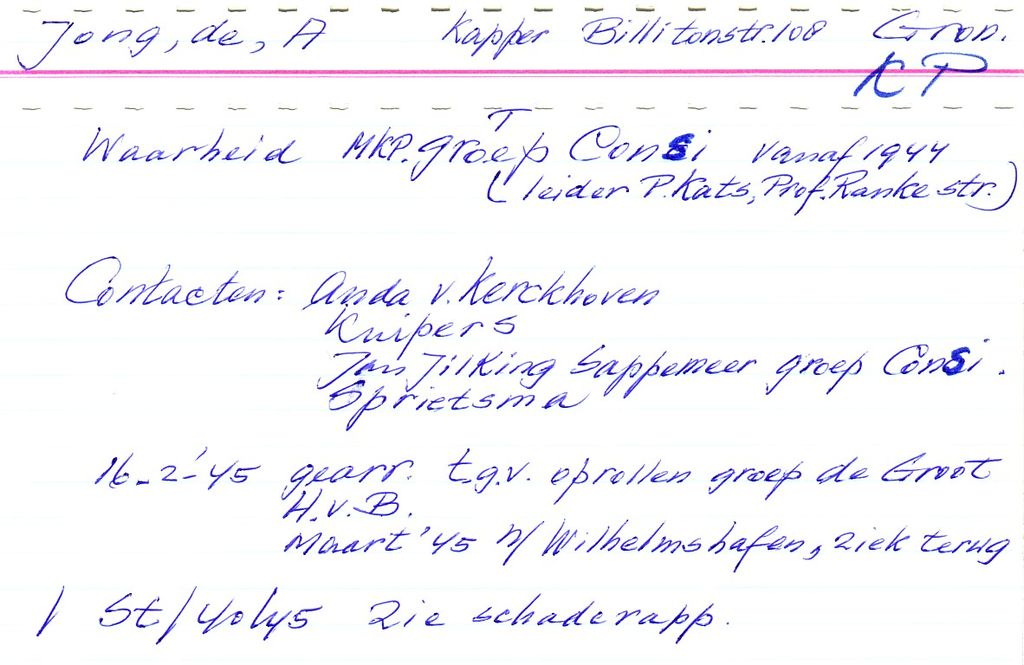 Jong, de, A Kapper Billitonstr. 108 Gron.
KP
T
Waarheid MKP. groep Consi vanaf 1944
(leider P. Kats, Prof. Ranke str.)
Contacten: Anda v. Kerckhoven
Kuipers
Jan Jilking Sappemeer groep Consi.
Sprietsma
16-2-'45 gearr. t.g.v. oprollen groep de Groot
H.v.B.
Maart '45 n/ Wilhelmshafen, ziek terug
/ St/40/45 Zie schaderapp.